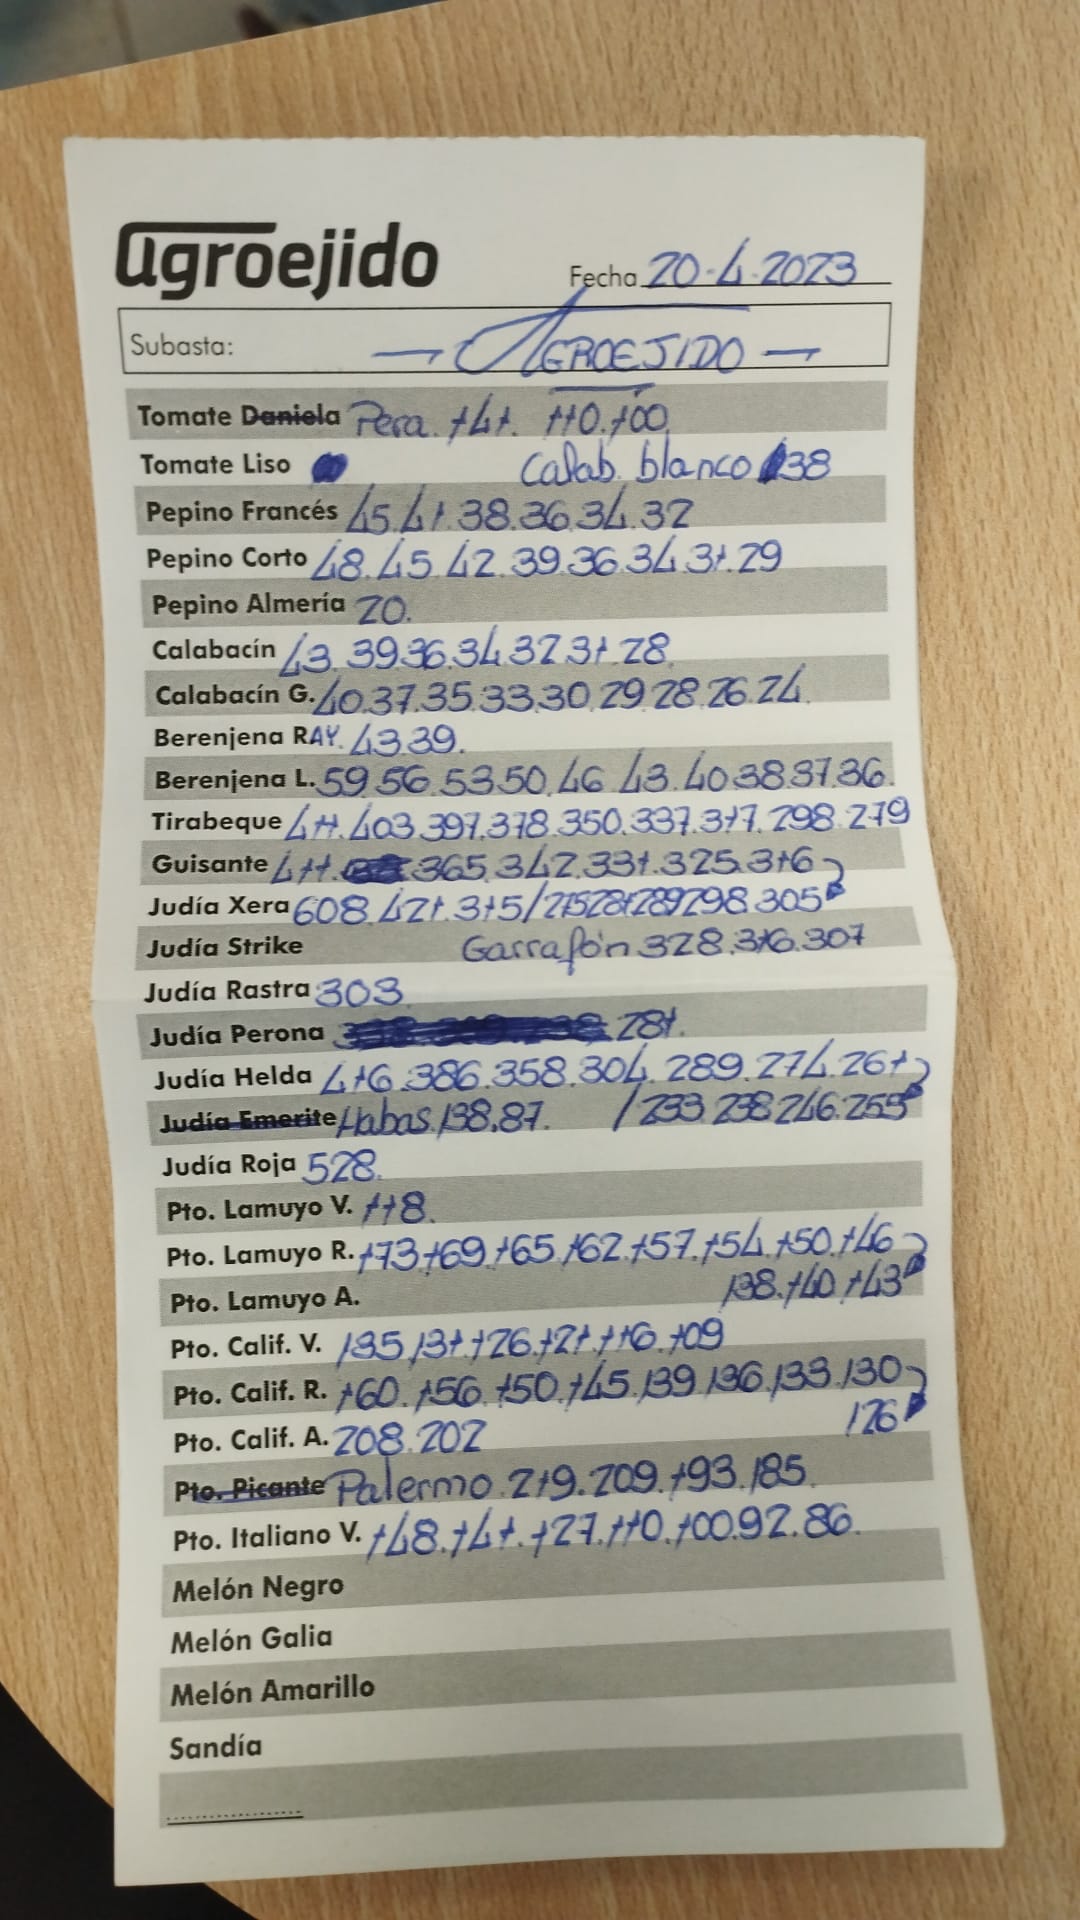 agroejido
Fecha 20-4-2023
Subasta: AGROEJIDO
Tomate Daniela Pera. 141. 110.100
Tomate Liso Calab. blanco 38
Pepino Francés 45.41.38.36.34.32
Pepino Corto 48.45.42.39.36.34.31.29
Pepino Almería 20.
Calabacín 43.39.36.34.32.31.28
Calabacín G. 40.37.35.33.30.29.28.26.24.
Berenjena RAY. 43.39.
Berenjena L. 59.56.53.50.46.43.40.38.37.36.
Tirabeque 411.403.397.378.350.337.317.298.279
Guisante 411. 365.342.331.325.316
Judía Xera 608.421.315/275.281.289.298.305
Judía Strike Garrafón 328.316.307
Judía Rastra 303
Judía Perona 281.
Judía Helda 416.386.358.304.289.274.261
Judía Emerite Habas.138.87. /233.238.246.255
Judía Roja 528.
Pto. Lamuyo V. 118.
Pto. Lamuyo R. 173.169.165.162.157.154.150.146
Pto. Lamuyo A. 138.140.143
Pto. Calif. V. 135.131.126.121.116.109
Pto. Calif. R. 160.156.150.145.139.136.133.130
Pto. Calif. A. 208.202 126
Pto. Picante Palermo 219.209.193.185.
Pto. Italiano V. 148.141.127.110.100.92.86.
Melón Negro
Melón Galia
Melón Amarillo
Sandía